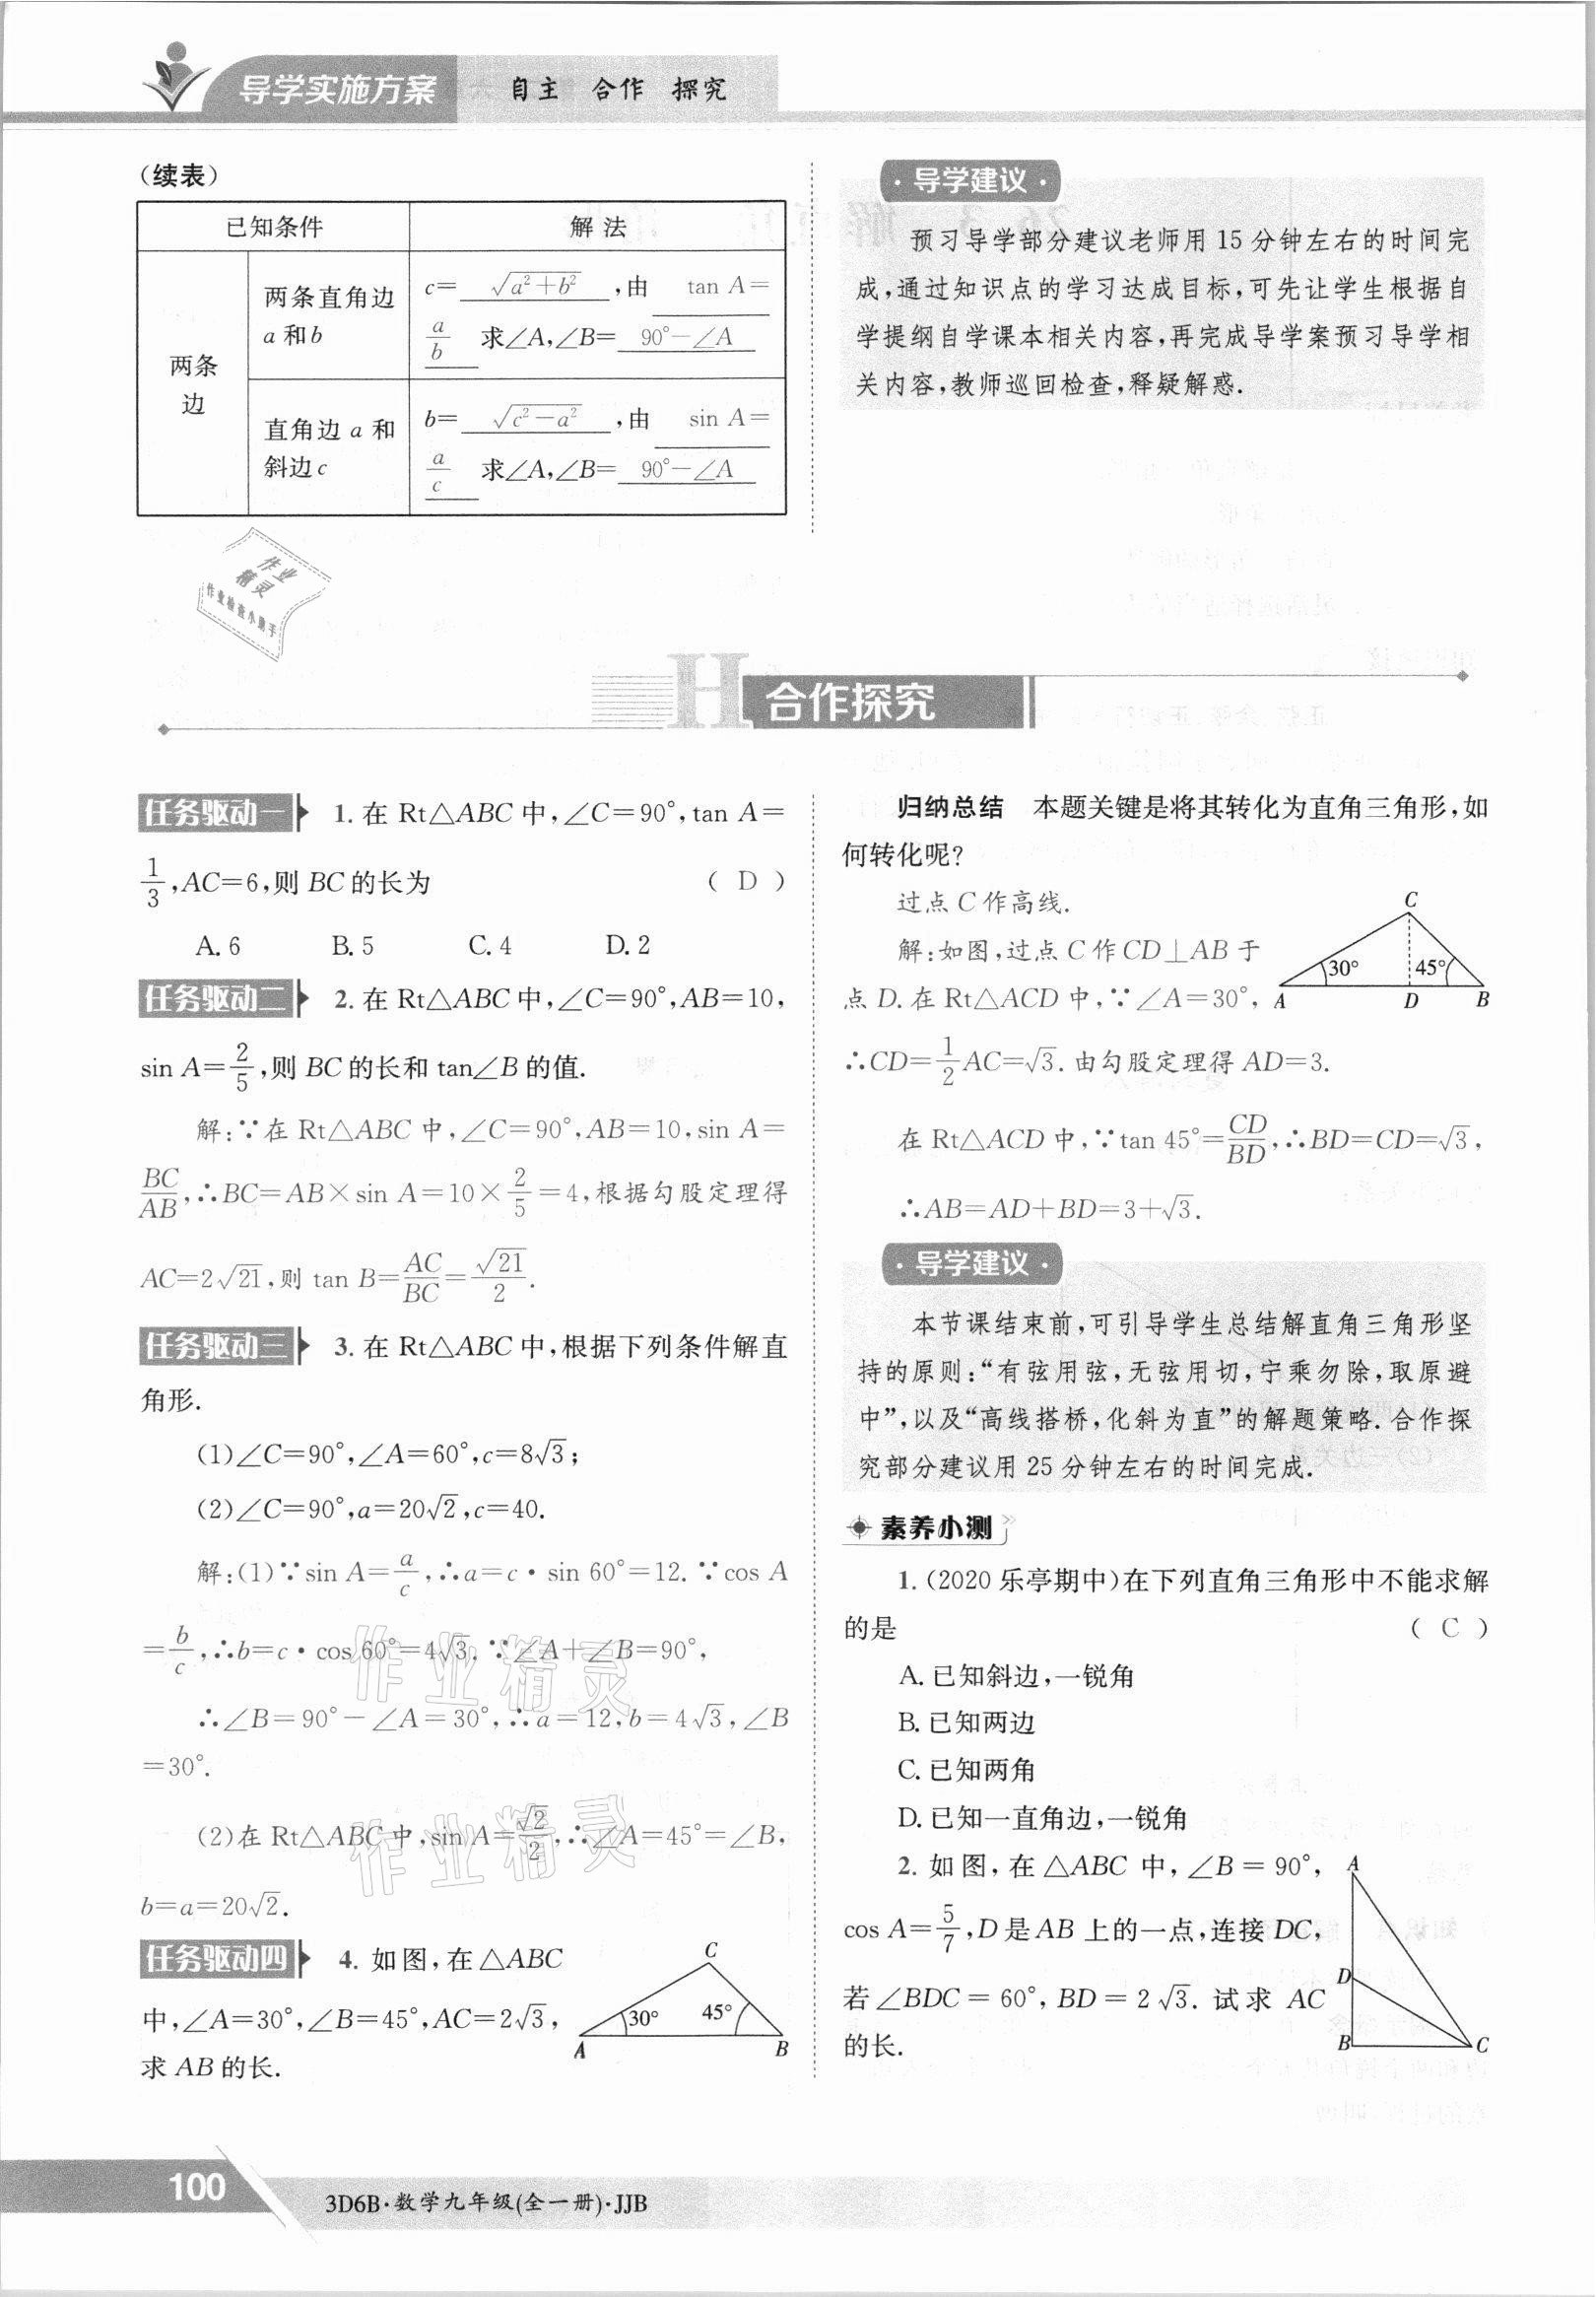 导学实施方案 自主 合作 探究
(续表)
已知条件 解 法
两条边
两条直角边
a 和 b
c= √(a²+b²) ,由 tan A=
a/b 求∠A,∠B= 90°-∠A
直角边 a 和
斜边 c
b= √(c²-a²) ,由 sin A=
a/c 求∠A,∠B= 90°-∠A
·导学建议·
预习导学部分建议老师用 15 分钟左右的时间完
成,通过知识点的学习达成目标,可先让学生根据自
学提纲自学课本相关内容,再完成导学案预习导学相
关内容,教师巡回检查,释疑解惑.
作业
精灵
作业检查小助手
H 合作探究
任务驱动一 1. 在 Rt△ABC 中,∠C=90°,tan A=
1/3,AC=6,则 BC 的长为 ( D )
A. 6 B. 5 C. 4 D. 2
任务驱动二 2. 在 Rt△ABC 中,∠C=90°,AB=10,
sin A=2/5,则 BC 的长和 tan∠B 的值.
解:∵在 Rt△ABC 中,∠C=90°,AB=10,sin A=
BC/AB,∴BC=AB×sin A=10×2/5=4,根据勾股定理得
AC=2√21,则 tan B=AC/BC=√21/2.
任务驱动三 3. 在 Rt△ABC 中,根据下列条件解直
角形.
(1)∠C=90°,∠A=60°,c=8√3;
(2)∠C=90°,a=20√2,c=40.
解:(1)∵sin A=a/c,∴a=c·sin 60°=12. ∵cos A
=b/c,∴b=c·cos 60°=4√3. ∵∠A+∠B=90°,
∴∠B=90°-∠A=30°,∴a=12,b=4√3,∠B
=30°.
(2)在 Rt△ABC 中,sin A=√2/2,∴∠A=45°=∠B,
b=a=20√2.
作业精灵
作业精灵
任务驱动四 4. 如图,在△ABC
中,∠A=30°,∠B=45°,AC=2√3,
求 AB 的长.
C
30° 45°
A B
归纳总结 本题关键是将其转化为直角三角形,如
何转化呢?
过点 C 作高线.
解:如图,过点 C 作 CD⊥AB 于
点 D. 在 Rt△ACD 中,∵∠A=30°,
∴CD=1/2AC=√3. 由勾股定理得 AD=3.
C
30° 45°
A D B
在 Rt△ACD 中,∵tan 45°=CD/BD,∴BD=CD=√3,
∴AB=AD+BD=3+√3.
·导学建议·
本节课结束前,可引导学生总结解直角三角形坚
持的原则:“有弦用弦,无弦用切,宁乘勿除,取原避
中”,以及“高线搭桥,化斜为直”的解题策略. 合作探
究部分建议用 25 分钟左右的时间完成.
素养小测
1. (2020 乐亭期中)在下列直角三角形中不能求解
的是 ( C )
A. 已知斜边,一锐角
B. 已知两边
C. 已知两角
D. 已知一直角边,一锐角
2. 如图,在△ABC 中,∠B=90°,
cos A=5/7,D 是 AB 上的一点,连接 DC,
若∠BDC=60°,BD=2√3. 试求 AC
的长.
A
D
B C
100 3D6B·数学九年级(全一册)·JJB